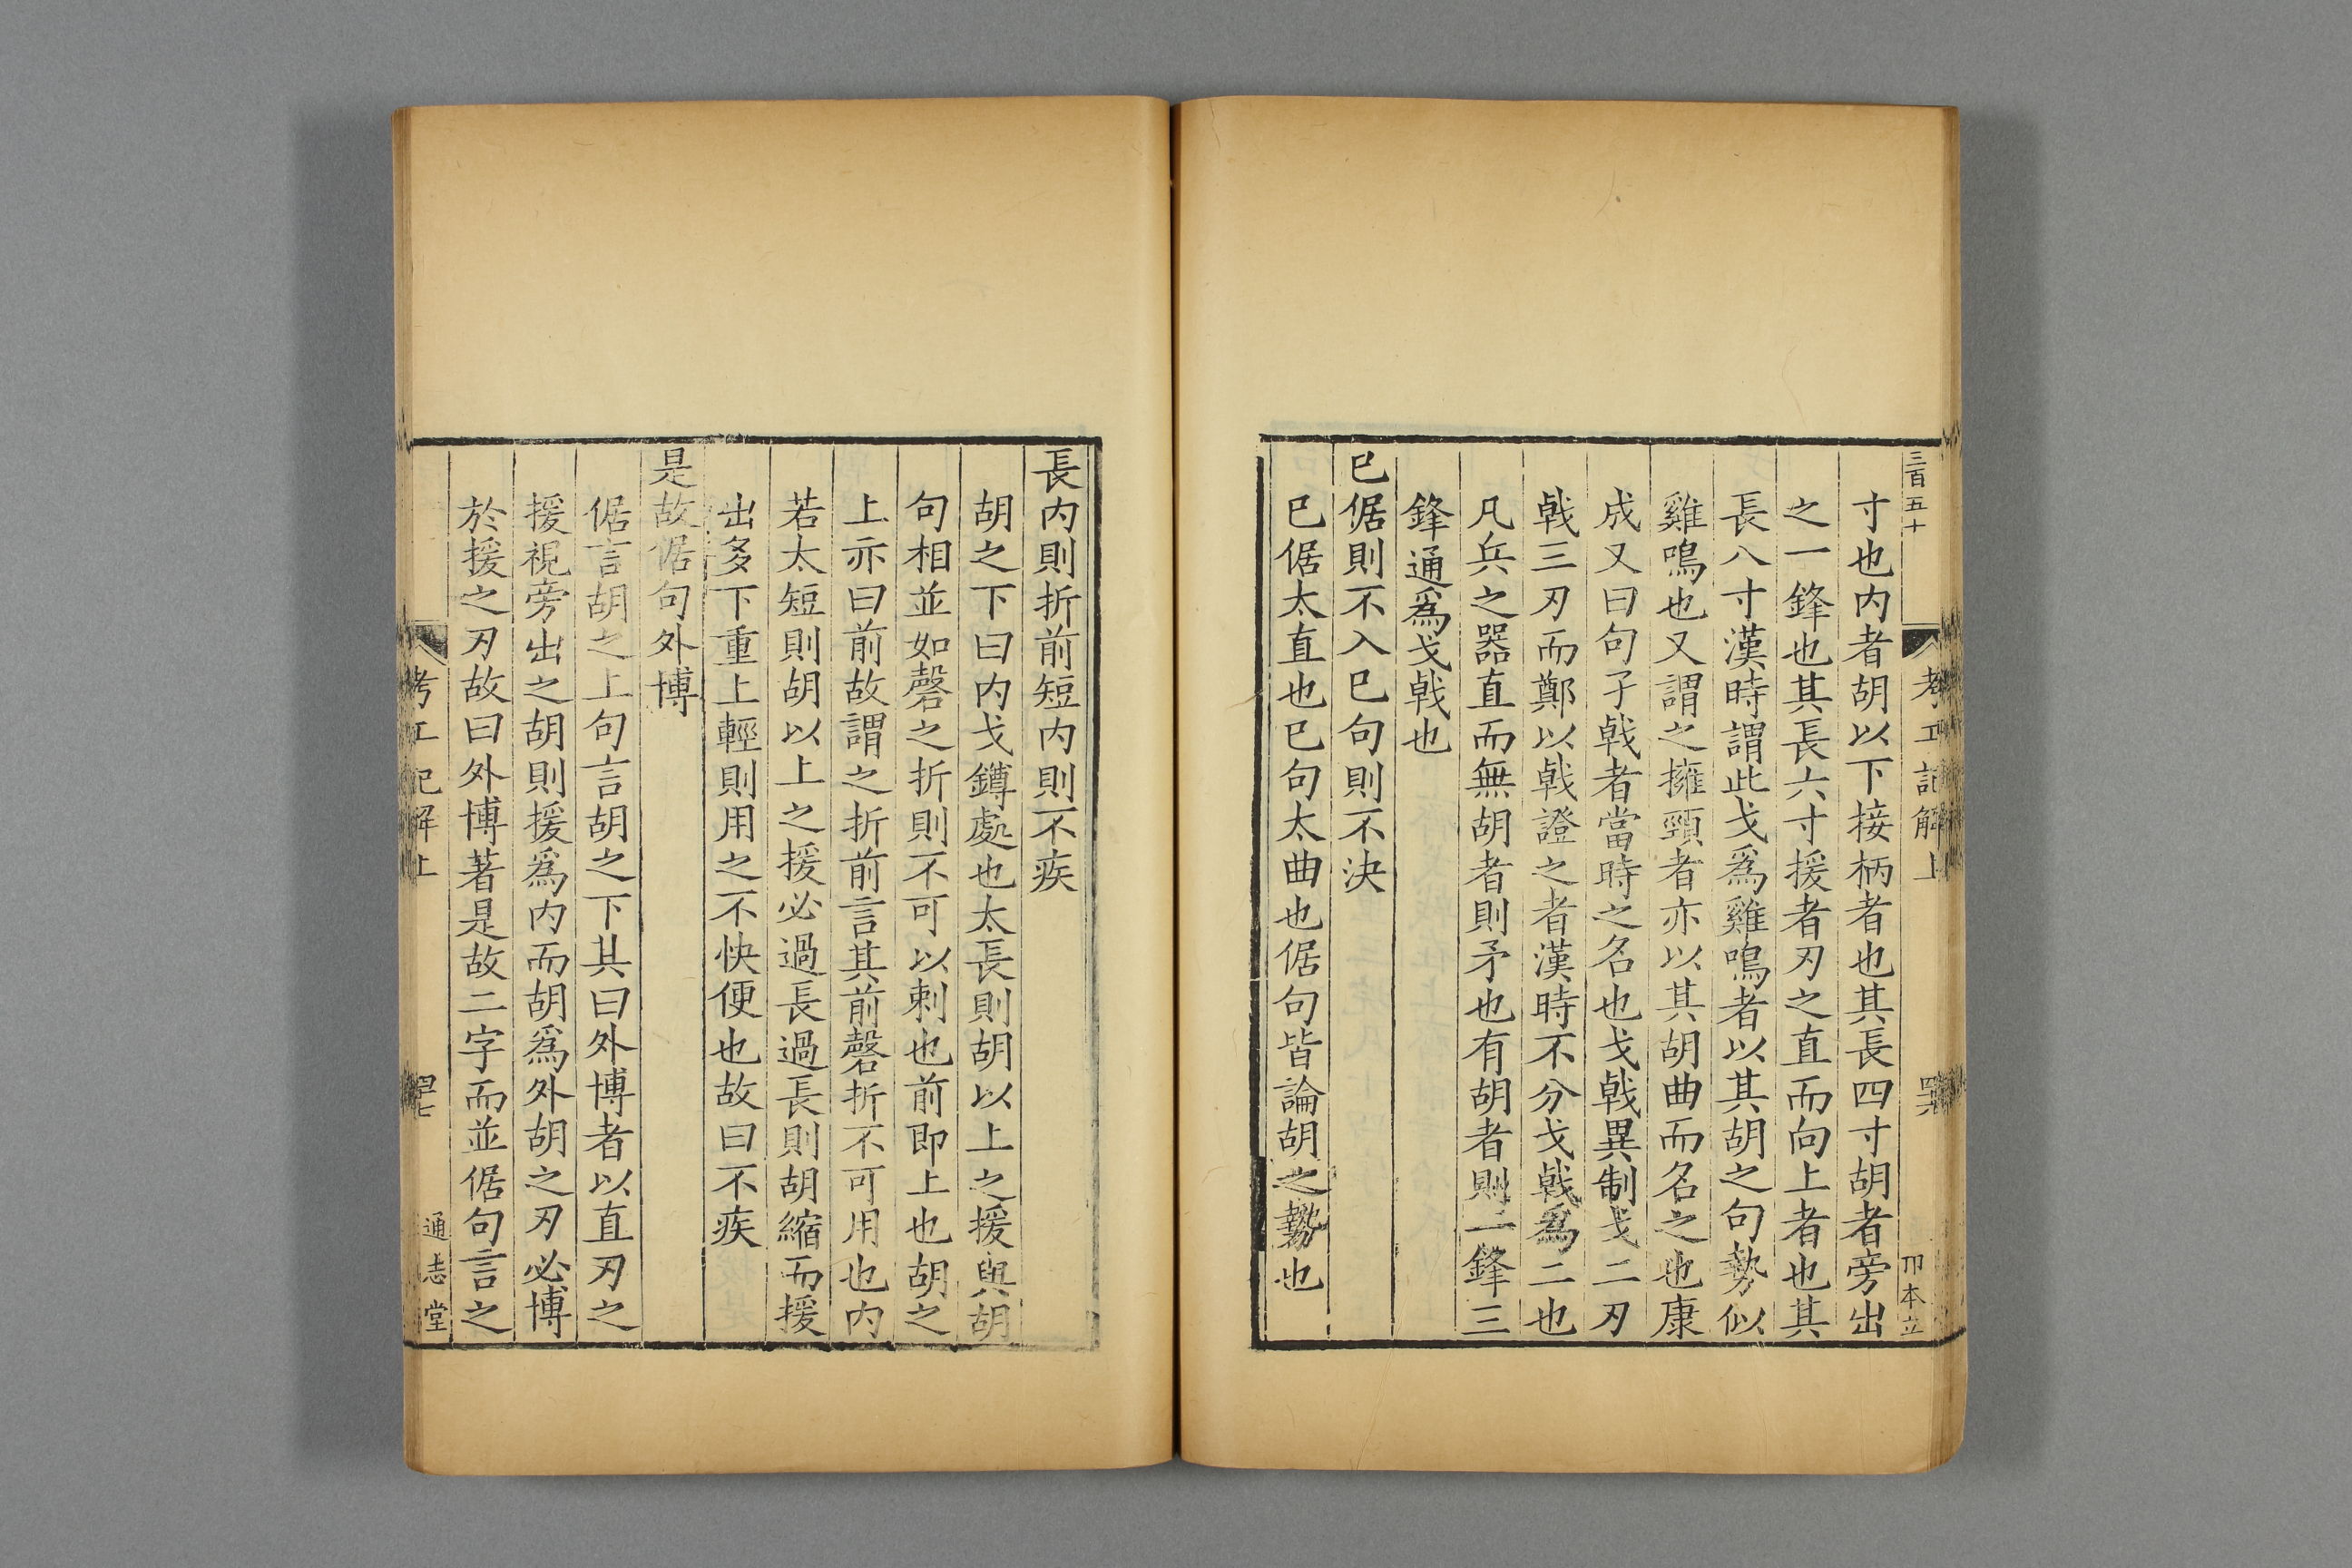 三百五十
考工記解上
寸也内者胡以下接柄者也其長四寸胡者旁出
之一鋒也其長六寸援者刃之直而向上者也其
長八寸漢時謂此戈爲雞鳴者以其胡之句勢似
雞鳴也又謂之擁頸者亦以其胡曲而名之也康
成又曰句孑戟者當時之名也戈戟異制戈二刃
戟三刃而鄭以戟證之者漢時不分戈戟爲二也
凡兵之器直而無胡者則矛也有胡者則二鋒三
鋒通爲戈戟也
已倨則不入已句則不決
已倨太直也已句太曲也倨句皆論胡之勢也
長内則折前短内則不疾
胡之下曰内戈鐏處也太長則胡以上之援與胡
句相並如磬之折則不可以刺也前即上也胡之
上亦曰前故謂之折前言其前磬折不可用也内
若太短則胡以上之援必過長過長則胡縮而援
出多下重上輕則用之不快便也故曰不疾
是故倨句外博
倨言胡之上句言胡之下其曰外博者以直刃之
援視旁出之胡則援爲内而胡爲外胡之刃必博
於援之刃故曰外博著是故二字而並倨句言之
考工記解上
四七
通志堂